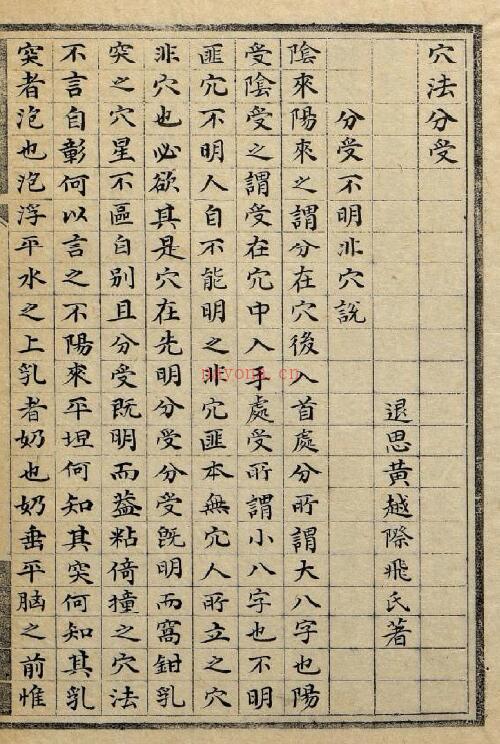 穴法分受
退思黄越際飛氏著
分受不明非穴説
陰來陽來之謂分在穴後入首處分所謂大八字也陽
受陰受之謂受在穴中入手處受所謂小八字也不明
匪穴不明人自不能明之非穴匪本無穴人所立之穴
非穴也必欲其是穴在先明分受分受既明而窩鉗乳
突之穴星不區自别且分受既明而蓋粘倚撞之穴法
不言自彰何以言之不陽來平坦何知其突何知其乳
突者泡也泡浮平水之上乳者奶也奶垂平胸之前惟
nayona.cn